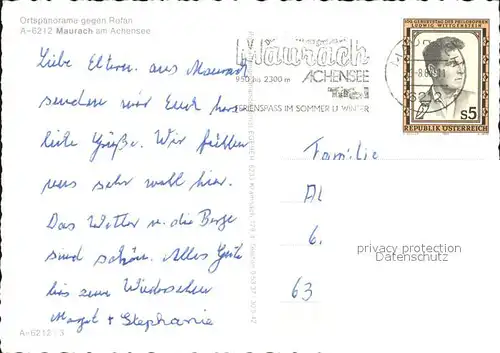 Ortspanorama gegen Rofan
A-6212 Maurach am Achensee
Liebe Eltern. aus Maurach
senden wir Euch herz
liebe Grüße. Wir fühlen
uns sehr wohl hier.
Das Wetter u. die Berge
sind schön. Alles Gute
bis zum Wiedersehen
Margot + Stephanie
A-6212 3
Maurach
950 bis 2300 m ACHENSEE
Tirol
FERIENSPASS IM SOMMER U WINTER
6212
100. GEBURTSTAG DES PHILOSOPHEN
LUDWIG WITTGENSTEIN
s5
REPUBLIK ÖSTERREICH
Familie
Al
6.
63
privacy protection
DELCAMPE